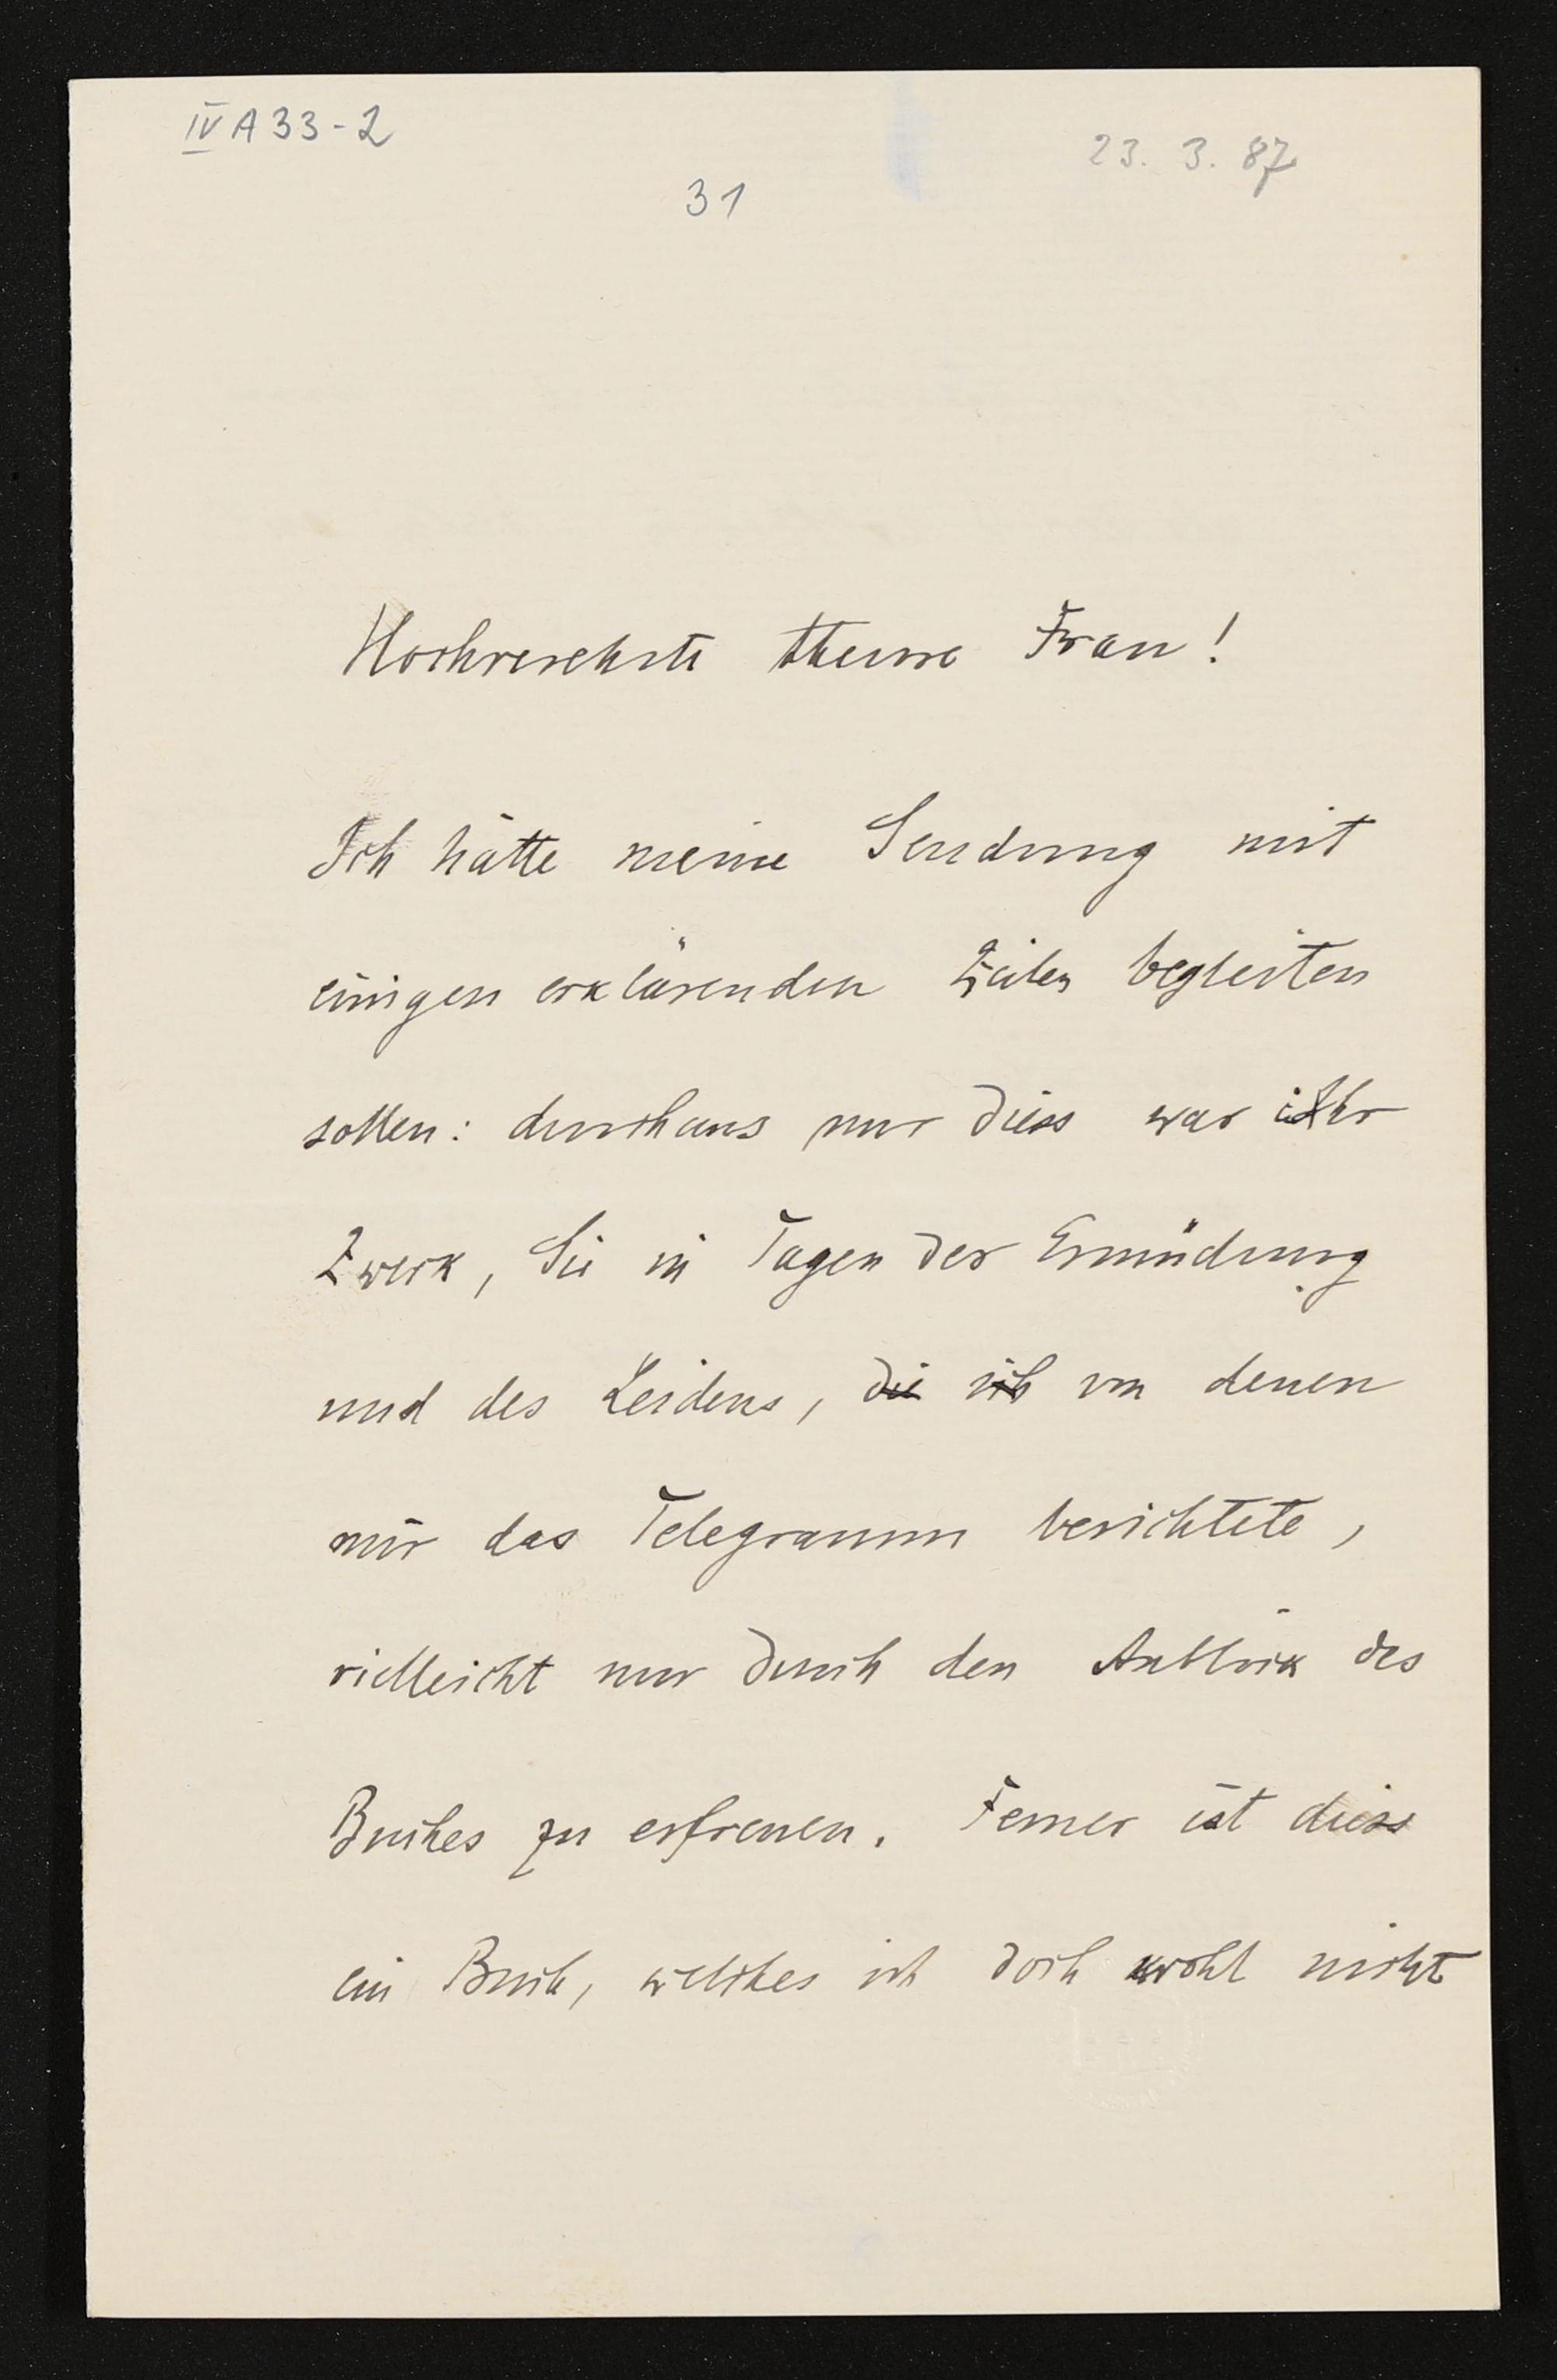 IV A 33-2
23. 3. 87
31
Hochverehrte theure Frau!
Ich hätte meine Sendung mit
einigen erklärenden Zeilen begleiten
sollen: durchaus nur diess war ihr
Zweck, Sie in Tagen der Ermüdung
und des Leidens, die ich von denen
mir das Telegramm berichtete,
vielleicht nur durch den Anblick des
Buches zu erfreuen. Ferner ist diess
ein Buch, welches ich doch wohl nicht